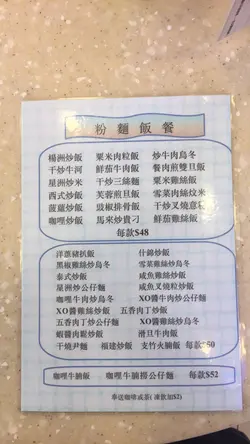 粉麵飯餐
楊洲炒飯 粟米肉粒飯 炒牛肉烏冬
干炒牛河 鮮茄牛肉飯 餐肉煎雙旦飯
星洲炒米 干炒三絲麵 粟米雞絲飯
西式炒飯 芙蓉煎旦飯 雪菜肉絲炆米
菠蘿炒飯 豉椒排骨飯 干炒叉燒意粉
咖喱炒飯 馬來炒貴刁 鮮茄雞絲飯
每款$48
洋蔥豬扒飯 什錦炒飯
黑椒雞絲炒烏冬 雪菜雞絲炒烏冬
泰式炒飯 咸魚雞絲炒飯
星洲炒公仔麵 咸魚叉燒粒炒飯
咖喱牛肉炒烏冬 XO醬牛肉炒公仔麵
XO醬雞絲炒飯 五香肉丁炒飯
五香肉丁炒公仔麵 XO醬雞絲炒公仔麵
蝦醬肉鬆炒飯 滑旦牛肉飯
干燒尹麵 福建炒飯 支竹火腩飯 每款$50
咖喱牛腩飯 咖喱牛腩撈公仔麵 每款$52
奉送咖啡或茶(凍飲加$2)